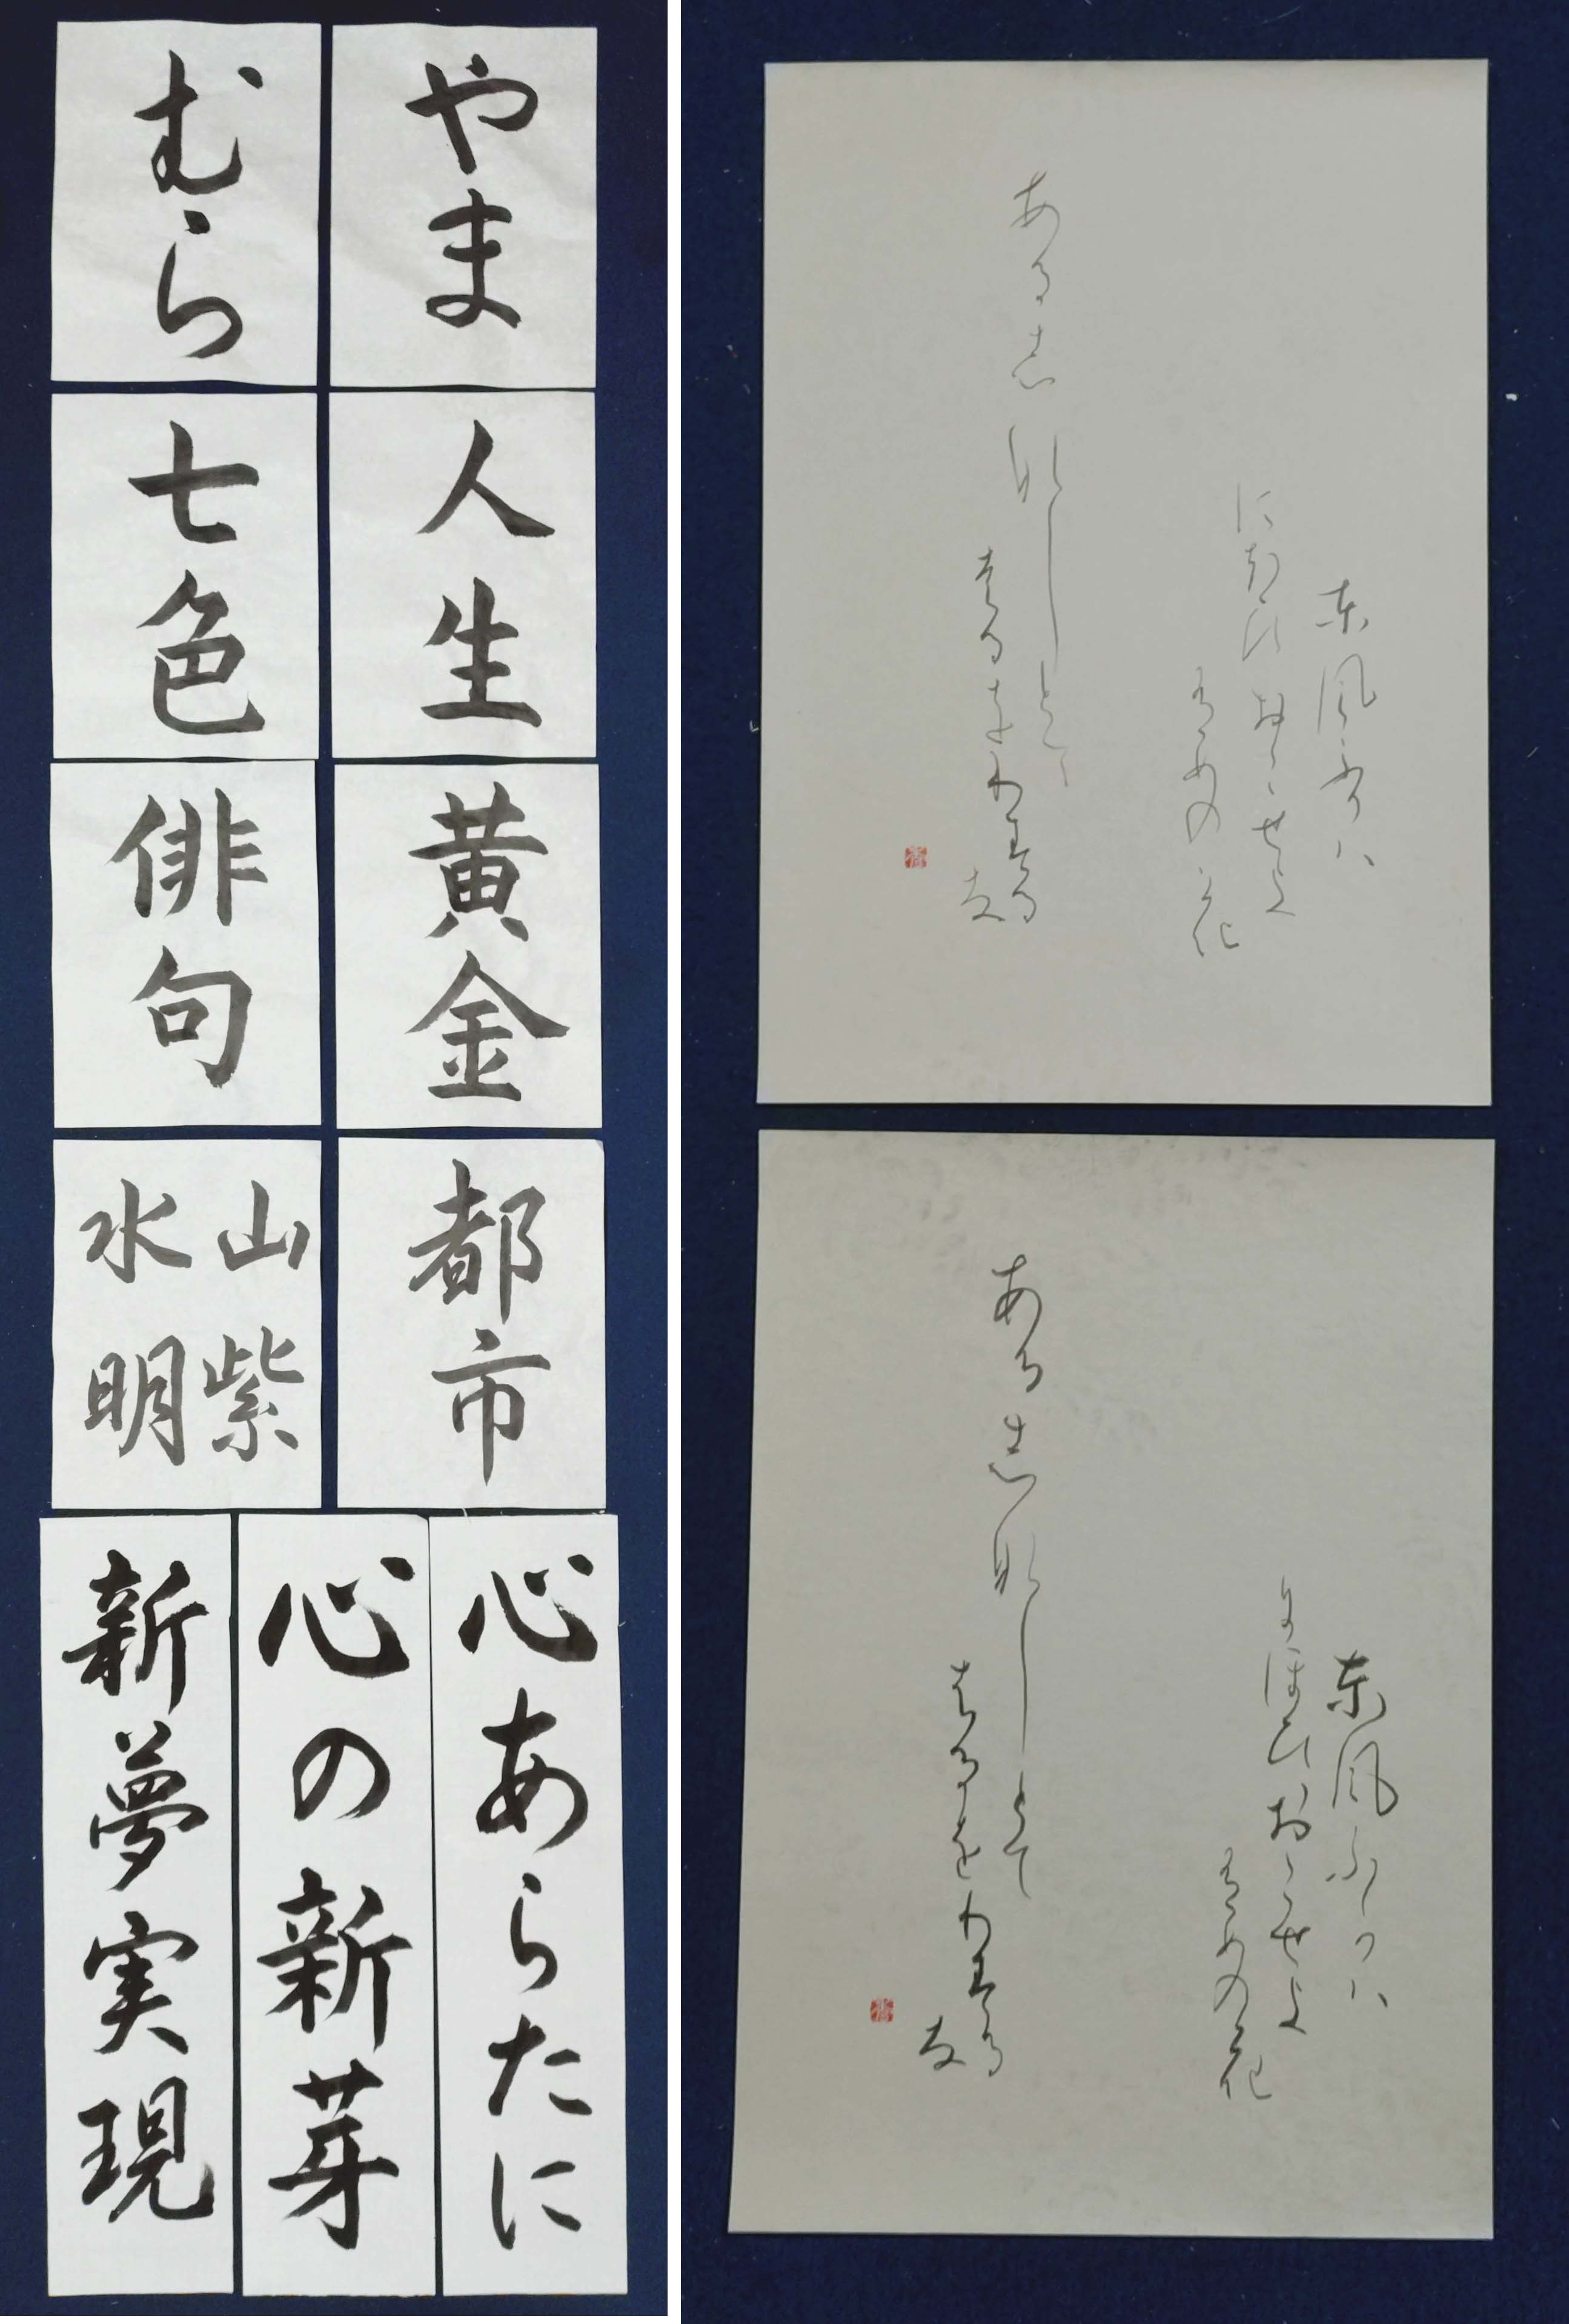 やま
むら
人生
七色
黄金
俳句
都市
山紫
水明
心あらたに
心の新芽
新夢実現
東風ふかハ
にほひおこせよ
うめの花
あるし那しとて
春るをわする
な
東風ふかハ
にほひおこせよ
うめの花
あるし那しとて
はるをわする
な